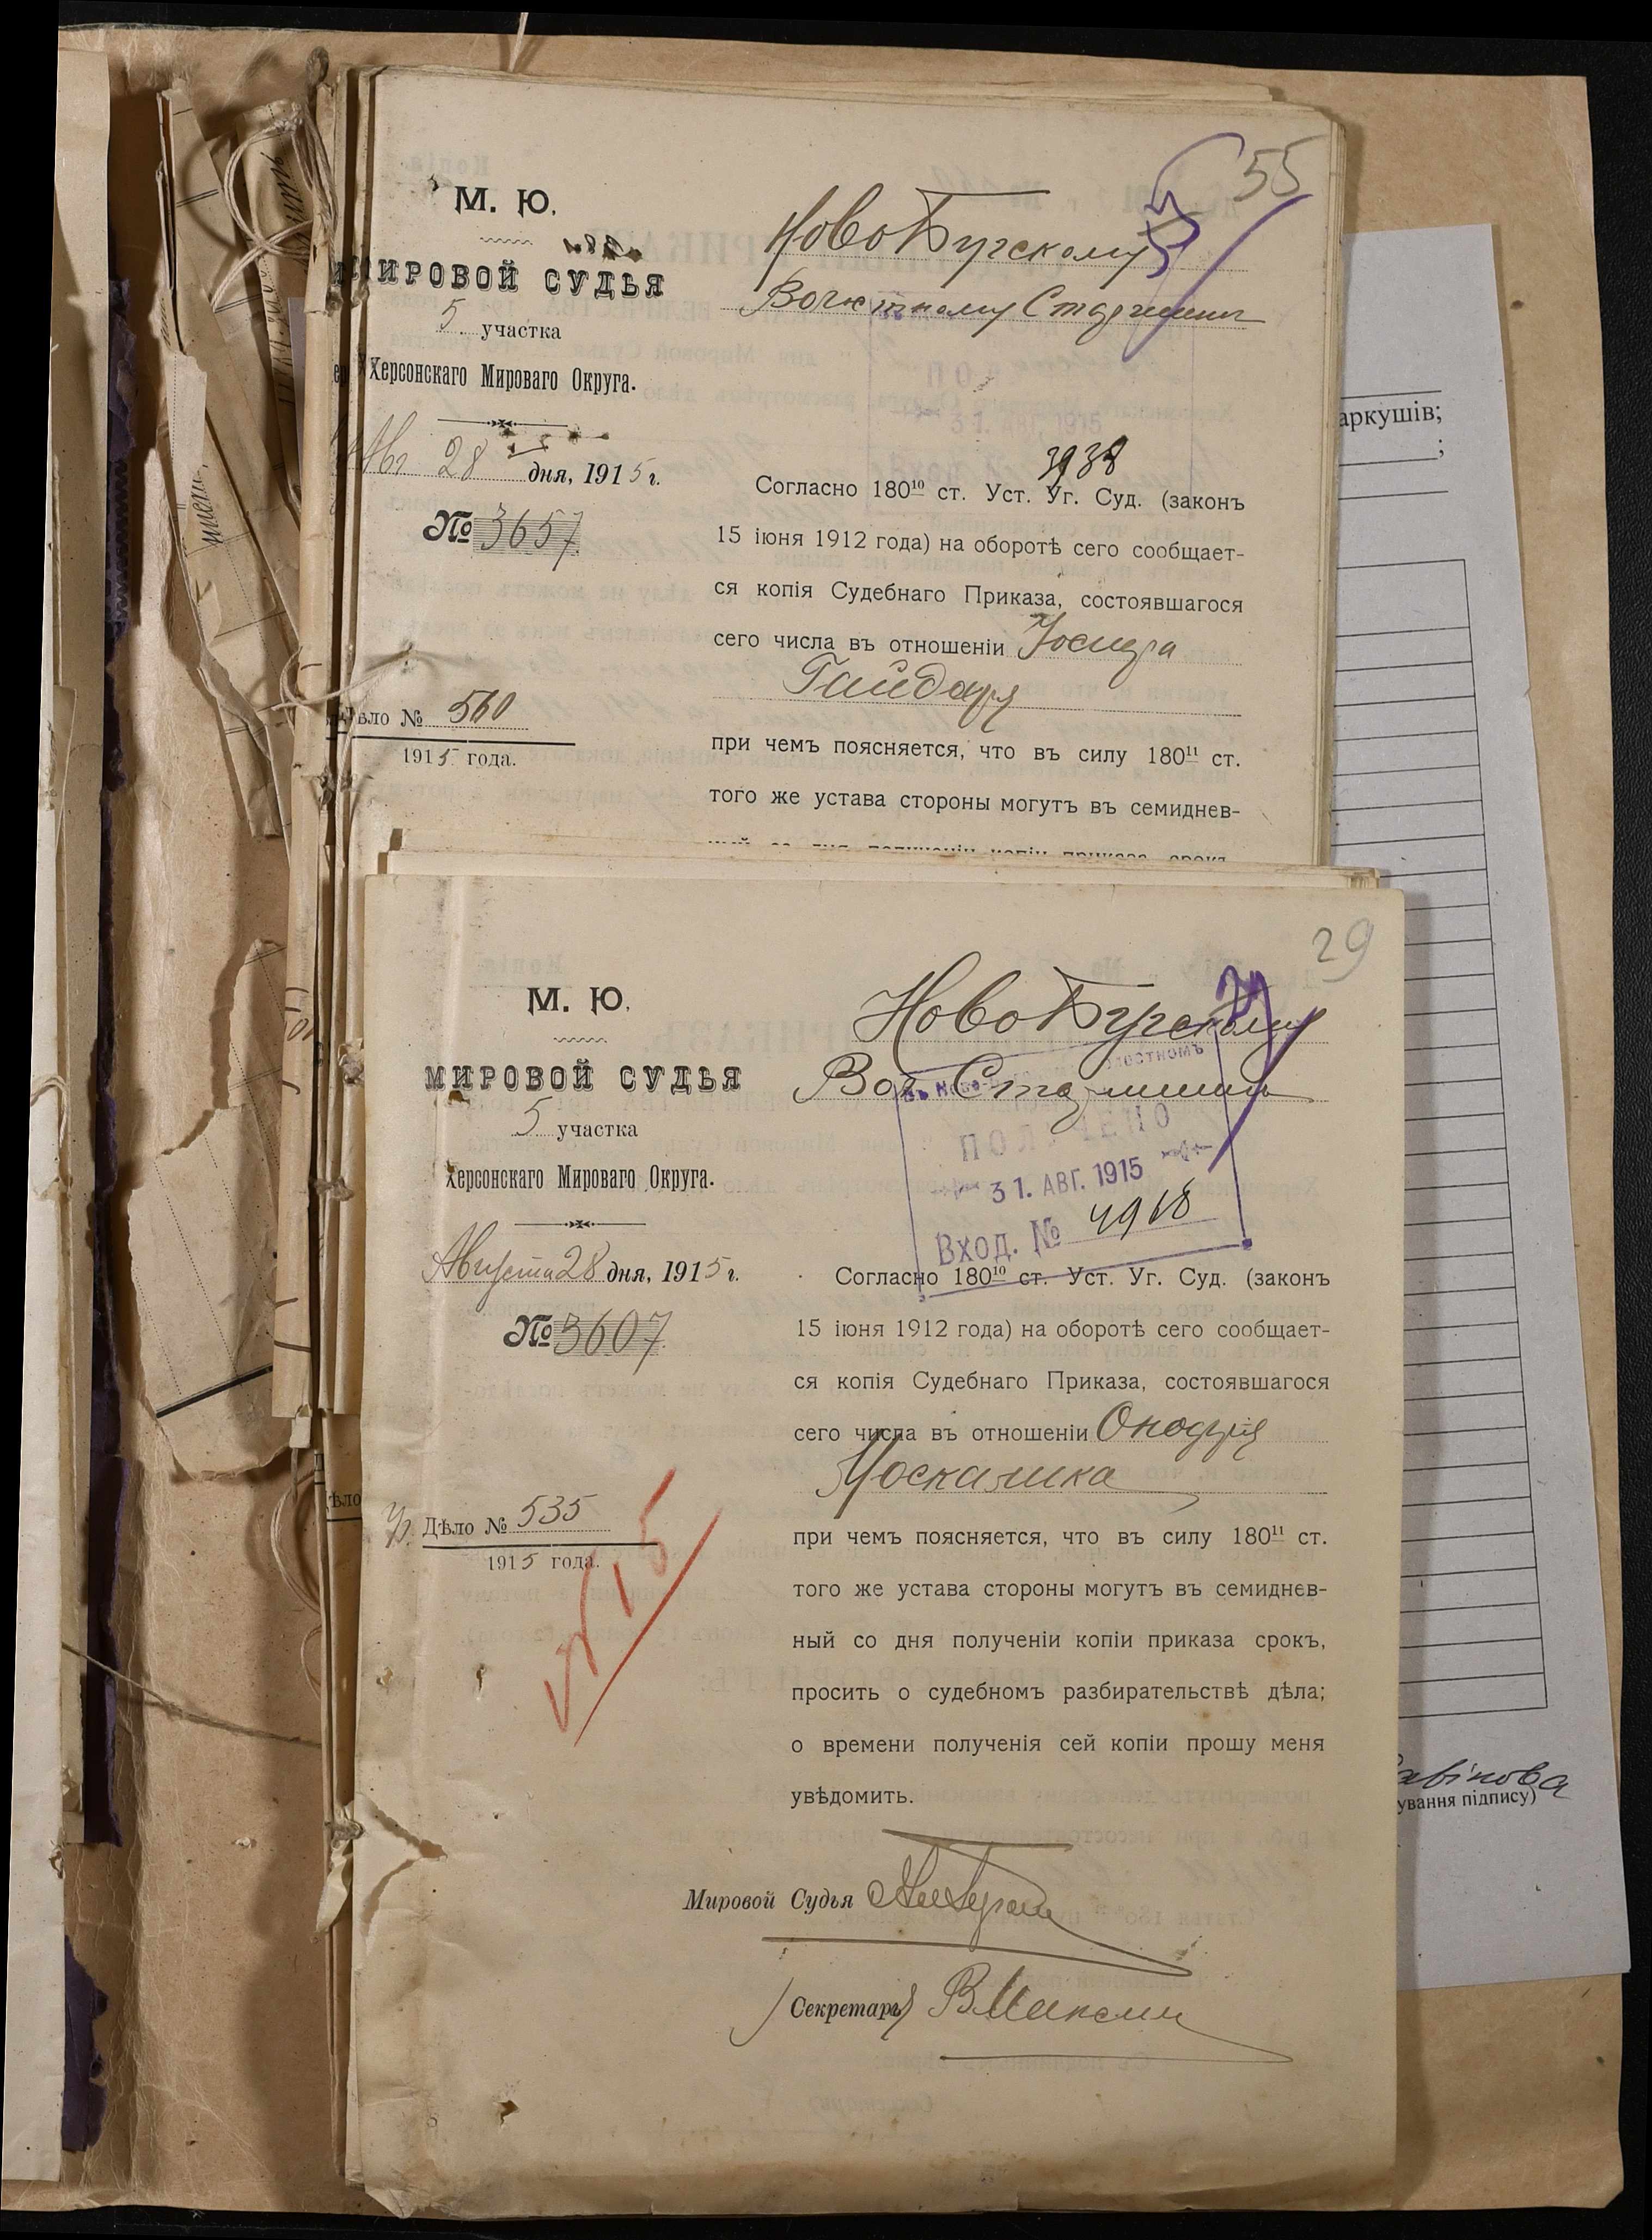 55
М. Ю.
НовоБугскому
МИРОВОЙ СУДЬЯ
Волостному Старшине
5 участка
Херсонскаго Мироваго Округа.
31. АВГ. 1915
Авг 28 дня, 1915 г.
3938
Согласно 180¹⁰ ст. Уст. Уг. Суд. (законъ
№ 3657
15 іюня 1912 года) на оборотѣ сего сообщает-
ся копія Судебнаго Приказа, состоявшагося
сего числа въ отношеніи Іосифа
Гайдара
Дѣло № 560
1915 года.
при чемъ поясняется, что въ силу 180¹¹ ст.
того же устава стороны могутъ въ семиднев-
ный со дня полученіи копіи приказа срокъ
29
М. Ю.
НовоБугскому
МИРОВОЙ СУДЬЯ
Вол Старшине
5 участка
ПОЛУЧЕНО
Херсонскаго Мироваго Округа.
31. АВГ. 1915
Вход. №
Августа 28 дня, 1915 г.
Согласно 180¹⁰ ст. Уст. Уг. Суд. (законъ
№ 3607
15 іюня 1912 года) на оборотѣ сего сообщает-
ся копія Судебнаго Приказа, состоявшагося
сего числа въ отношеніи
Москалика
Дѣло № 535
1915 года.
при чемъ поясняется, что въ силу 180¹¹ ст.
того же устава стороны могутъ въ семиднев-
ный со дня полученіи копіи приказа срокъ,
просить о судебномъ разбирательствѣ дѣла;
о времени полученія сей копіи прошу меня
увѣдомить.
Мировой Судья
Секретарь
аркушів;
;
ування підпису)